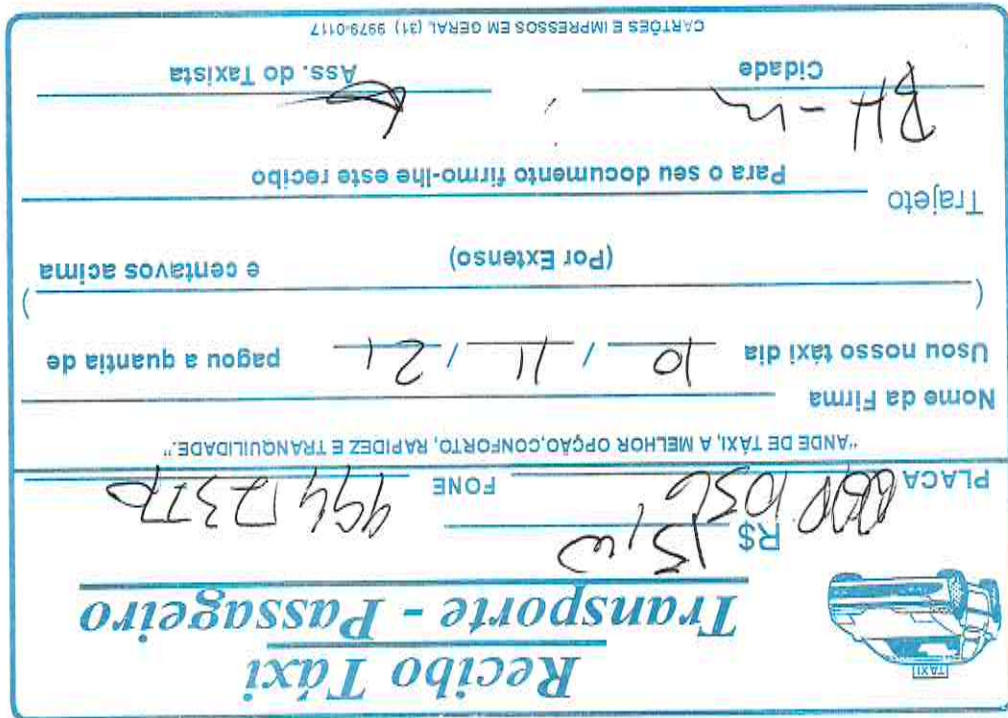 TAXI
Recibo Táxi
Transporte - Passageiro
R$ 15,00
PLACA FONE
"ANDE DE TÁXI, A MELHOR OPÇÃO,CONFORTO, RAPIDEZ E TRANQUILIDADE."
Nome da Firma
Usou nosso táxi dia 10 / 11 / 21 pagou a quantia de
( (Por Extenso) e centavos acima )
Trajeto
Para o seu documento firmo-lhe este recibo
BH -
Cidade Ass. do Taxista
CARTÕES E IMPRESSOS EM GERAL (31) 9979-0117